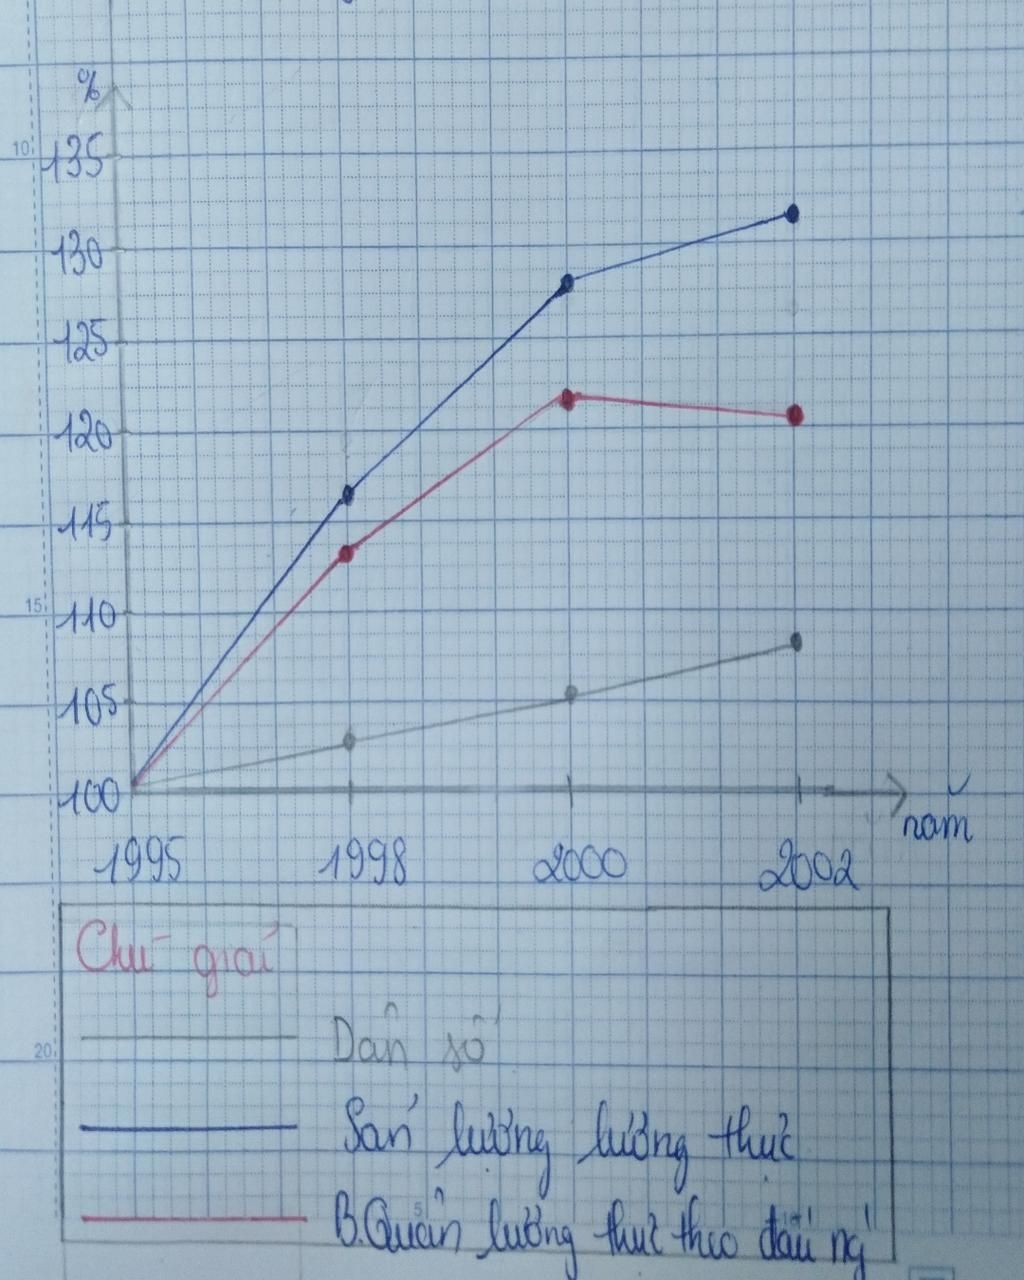 %
135
130
125
120
115
110
105
100
năm
1995 1998 2000 2002
Chú giải
Dân số
Sản lượng lương thực
B.Quân lương thực theo đầu ng
10
15
20
5